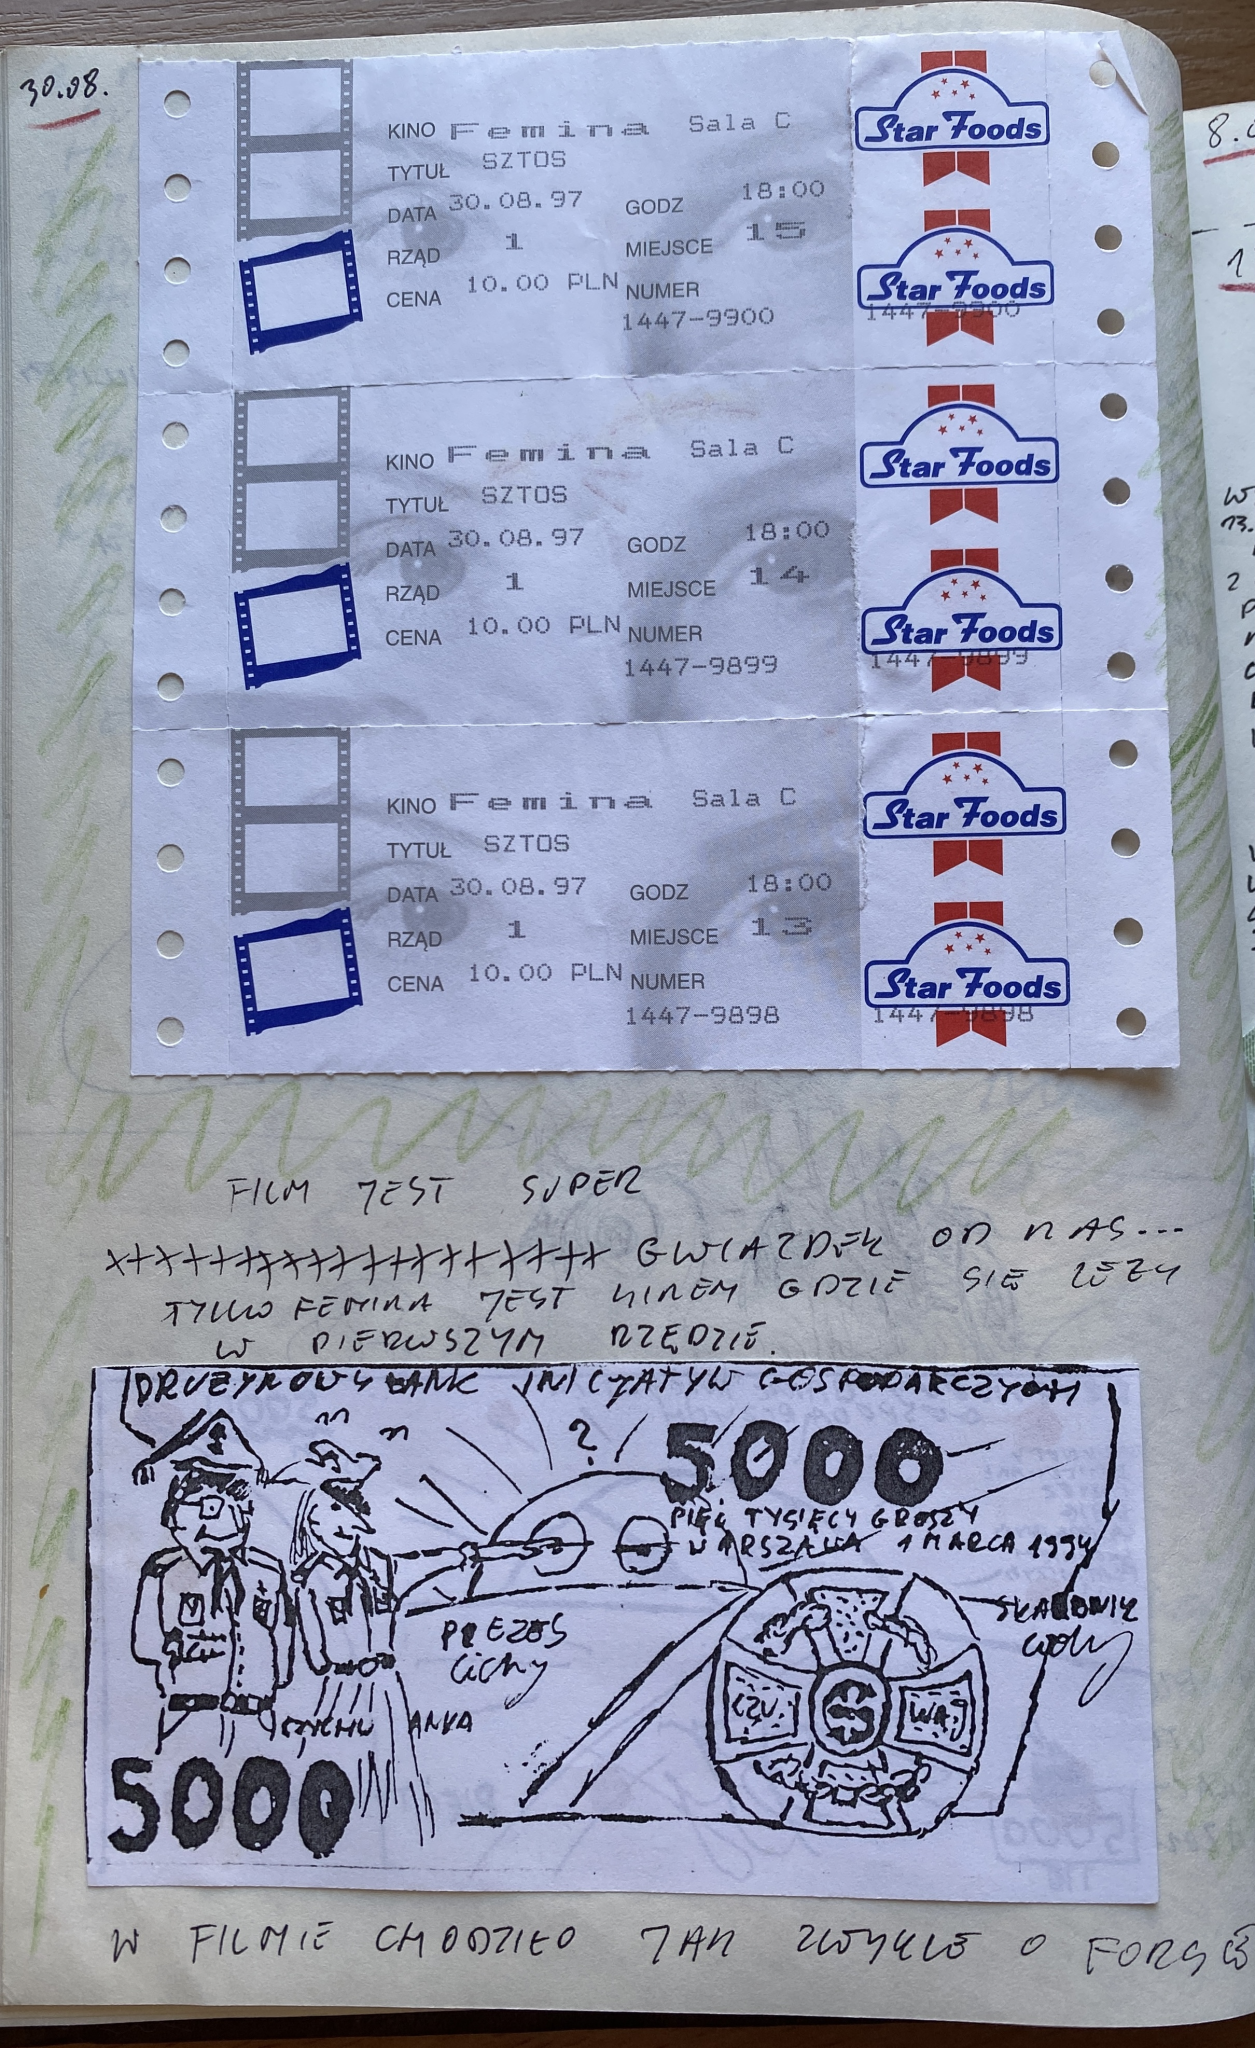 30.08.
KINO Femina Sala C
TYTUŁ SZTOS
DATA 30.08.97 GODZ 18:00
RZĄD 1 MIEJSCE 15
CENA 10.00 PLN NUMER
1447-9900
Star Foods
Star Foods
1447-9900
KINO Femina Sala C
TYTUŁ SZTOS
DATA 30.08.97 GODZ 18:00
RZĄD 1 MIEJSCE 14
CENA 10.00 PLN NUMER
1447-9899
Star Foods
Star Foods
1447-9899
KINO Femina Sala C
TYTUŁ SZTOS
DATA 30.08.97 GODZ 18:00
RZĄD 1 MIEJSCE 13
CENA 10.00 PLN NUMER
1447-9898
Star Foods
Star Foods
1447-9898
FILM JEST SUPER
GWIAZDEK OD NAS...
TYLKO FEMINA JEST KINEM GDZIE SIĘ LEŻY
W PIERWSZYM RZĘDZIE.
DRUŻYNOWY BANK INICJATYW GOSPODARCZYCH
?
5000
PIĘĆ TYSIĘCY GROSZY
WARSZAWA 1 MARCA 1994
PREZES
Cichy
SKARBNIK
CZU WAJ
ANKA
5000
W FILMIE CHODZIŁO JAK ZWYKLE O FORSĘ
8.
1
W
13.
2